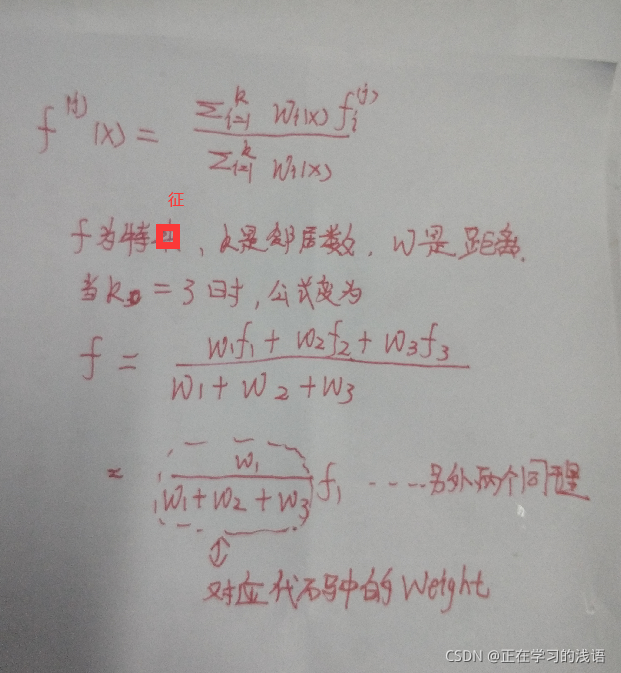 f^(j)(x) = Σ_{i=1}^{k} w_i(x) f_i^(j) / Σ_{i=1}^{k} w_i(x)
征
f为特, k是邻居数, w是距离.
当k = 3时, 公式变为
f = w1f1 + w2f2 + w3f3 / w1 + w2 + w3
= w1 / w1 + w2 + w3 f1 ……另外两个同理
对应代码中的Weight
CSDN @正在学习的浅语